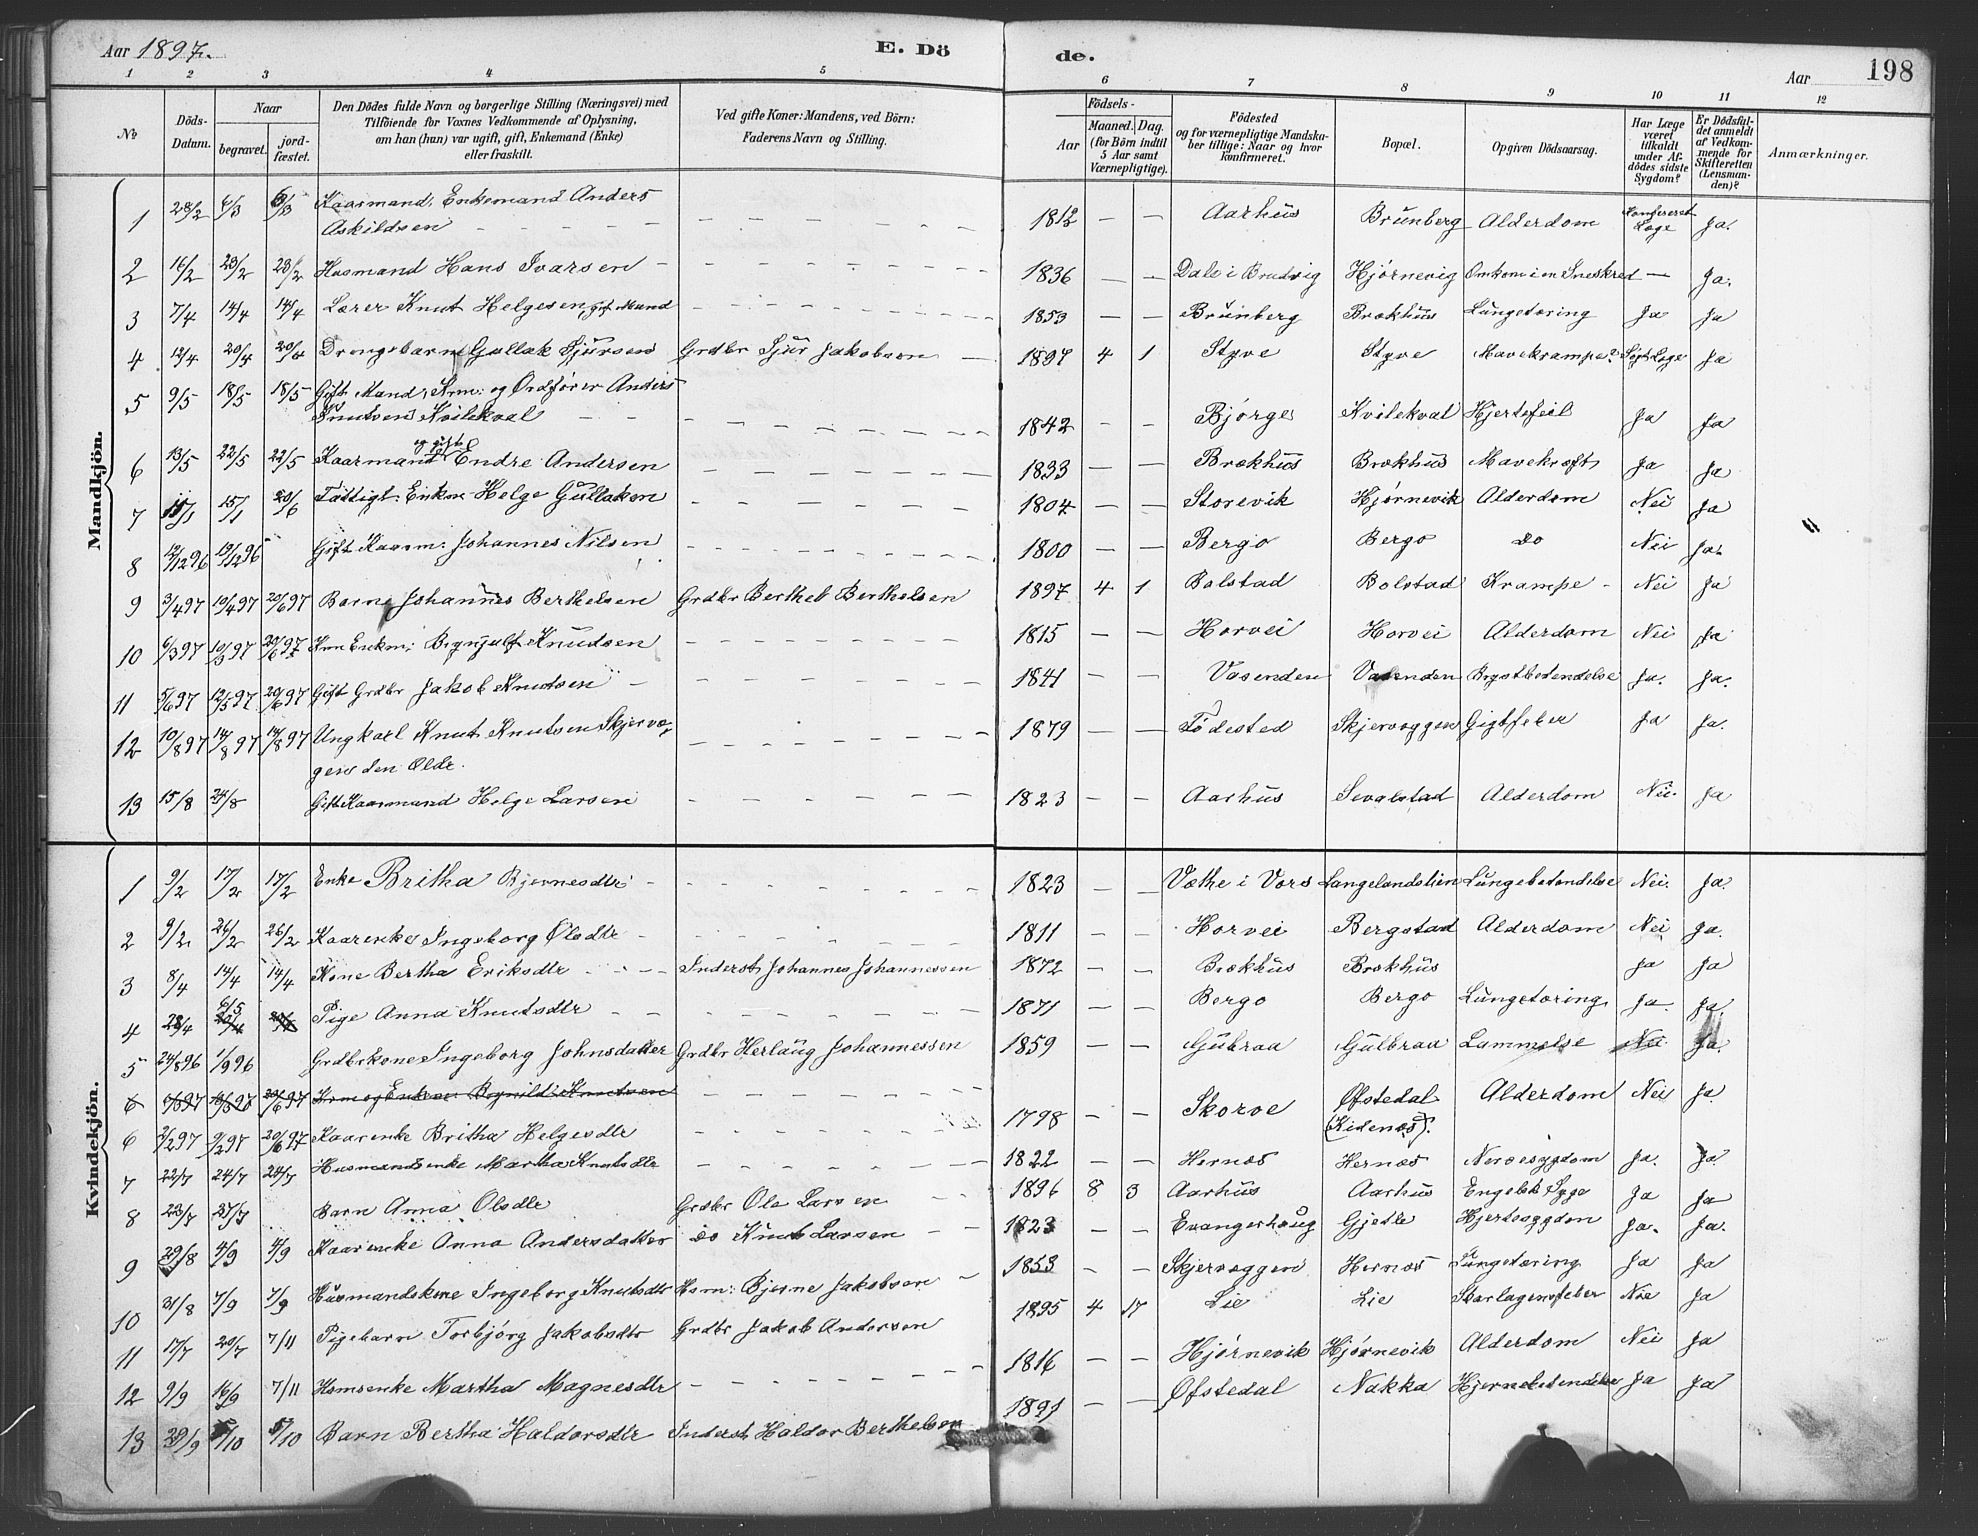 Aar 1897.
E. Dö
de.
Aar
198
1 2 3 4 5 6 7 8 9 10 11 12
No
Döds-Datum.
Naar
begravet.
jord-fæstet.
Den Dödes fulde Navn og borgerlige Stilling (Næringsvei) med
Tilföiende for Voxnes Vedkommende af Oplysning,
om han (hun) var ugift, gift, Enkemand (Enke)
eller fraskilt.
Ved gifte Koner: Mandens, ved Börn:
Faderens Navn og Stilling.
Födsels-
Aar
Maaned. Dag.
(for Börn indtil
5 Aar samt
Værnepligtige).
Födested
og for værnepligtige Mandska-
ber tillige: Naar og hvor
konfirmeret.
Bopæl.
Opgiven Dödsaarsag.
Har Læge
været
tilkaldt
under Af-
dödes sidste
Sygdom?
Er Dödsful-
det anmeldt
af Vedkom-
mende for
Skifteretten
(Lensman-
den)?
Anmærkninger.
Mandkjön.
1 28/2 6/3 6/3 Kaarmand, Enkemand Anders
Askildsen – 1812 — — Aarhus Brunberg Alderdom Konfereret Læge Ja.
2 16/2 23/2 23/2 Husmand Hans Ivarsen – 1836 — — Dale i Brudvig Hjørnevig Omkom i en Sneskred — Ja.
3 7/4 14/4 14/4 Lærer Knut Helgesen, gift Mand 1853 — — Brunberg Brækhus Lungetæring Ja Ja
4 12/4 20/4 20/4 Drengebarn Gullak Sjursen Grdbr Sjur Jakobsen – 1897 4 1 Styve Styve Mavekrampe? Søgt Læge Ja
5 9/5 18/5 18/5 Gift Mand, Krm: og Ordfører Anders
Knutsen Kvilekval 1842 — — Bjørge Kvilekval Hjertefeil Ja Ja
6 13/5 22/5 22/5 Kaarmand og gift Endre Andersen 1833 — — Brækhus Brækhus Mavekræft Ja Ja
7 11/1 15/1 20/6 Fattigt. Enkm Helge Gullaksen 1804 — — Storevik Hjørnevik Alderdom Nei Ja
8 12/12 96 19/12 96 Gift Kaarm: Johannes Nilsen 1800 — — Bergo Bergo do Nei Ja.
9 3/4 97 19/4 97 20/6 97 Barn Johannes Berthelsen Grdbr Berthel Berthelsen 1897 4 1 Bolstad Bolstad Krampe – Nei Ja
10 6/3 97 10/3 97 20/6 97 Krm Enkm: Brynjulf Knudsen 1815 — — Horvei Horvei Alderdom Nei Ja
11 5/6 97 12/5 97 20/6 97 Gift Grdbr Jakob Knutsen – 1841 — — Vasenden Vasenden Brystbetendelse Ja. Ja.
12 10/8 97 14/8 97 14/8 97 Ungkarl Knut Knutsen Skjervæg-
gen den Ældr. 1879 — — Fødested Skjervæggen Gigtfeber Ja Ja.
13 15/8 24/8 Gift Kaarmand Helge Larsen 1823 — — Aarhus Sevalstad Alderdom Nei. Ja
Kvindekjön.
1 9/2 17/2 17/2 Enke Britha Bjørnesdtr 1823 — — Væthe i Vors Langelandslien Lungebetendelse Nei. Ja.
2 9/2 26/2 26/2 Kaarenke Ingeborg Olsdtr – 1811 — — Horvei Bergstad Alderdom Nei Ja.
3 8/4 14/4 14/4 Kone Bertha Eriksdtr Inderst Johannes Johannessen 1872 — — Brækhus Brækhus Ja Ja
4 28/4 6/5 Pige Anna Knutsdtr 1871 — — Bergo Bergo Lungetæring Ja Ja.
5 24/8 96 1/9 96 Grdbrkone Ingeborg Johnsdatter Grdbr Herlaug Johannessen 1859 — — Gulbraa Gulbraa Lammelse Nei Ja.
6 6/3 97 10/3 97 20/6 97 Krm og Enkm: Brynild Knutsen
6 2/2 97 9/2 97 20/6 97 Kaarenke Britha Helgesdtr 1798 — — Skorve Øfstedal (Kidenæs). Alderdom Nei Ja
7 22/7 24/7 24/7 Husmandsenke Martha Knutsdtr 1822 — — Hernæs Hernæs Nervesygdom Ja. Ja
8 23/7 27/7 Barn Anna Olsdtr Grdbr Ole Larsen 1896 8 3 Aarhus Aarhus Engelsk Syge Ja Ja
9 29/8 4/9 4/9 Kaarenke Anna Andersdatter do Knut Larsen – 1823 — — Evangerhaug Gjetle Hjertesygdom Ja. Ja.
10 31/8 7/9 7/9 Husmandskone Ingeborg Knutsdtr Hsm: Bjørne Jakobsen – 1853 — — Skjervæggen Hernæs Lungetæring Ja Ja
11 17/7 20/7 7/11 Pigebarn Torbjørg Jakobsdtr Grdbr Jakob Andersen 1895 4 17 Lie Lie Skarlagensfeber Nei Ja
12 9/9 16/9 7/11 Hsmsenke Martha Magnesdtr 1816 — — Hjørnevik Hjørnevik Alderdom Nei Ja
13 29/9 5/10 5/10 Barn Bertha Haldorsdtr Inderst Haldor Berthelsen 1891 — — Øfstedal Nakka Hjernebetendelse Ja Ja